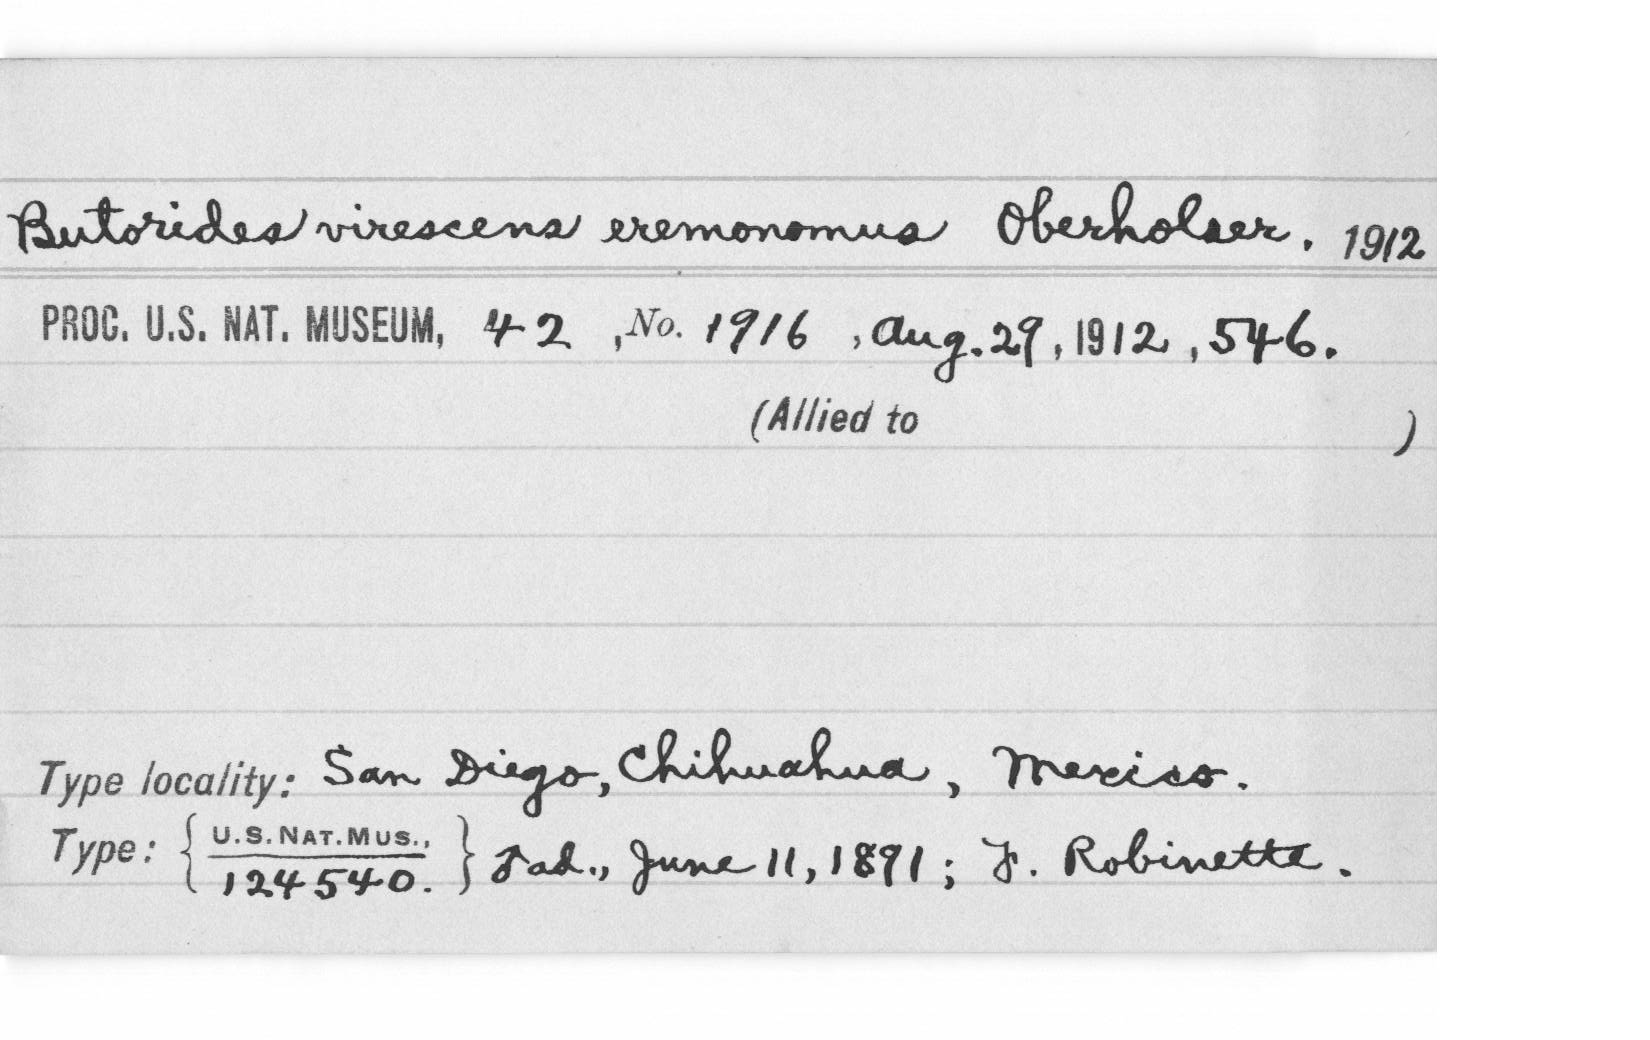 Butorides virescens eremonomus Oberholser. 1912
PROC. U.S. NAT. MUSEUM, 42, No. 1916, Aug. 29, 1912, 546.
(Allied to )
Type locality: San Diego, Chihuahua, Mexico.
Type: { U.S. NAT. MUS., } ♂ ad., June 11, 1891; F. Robinette.
124540.